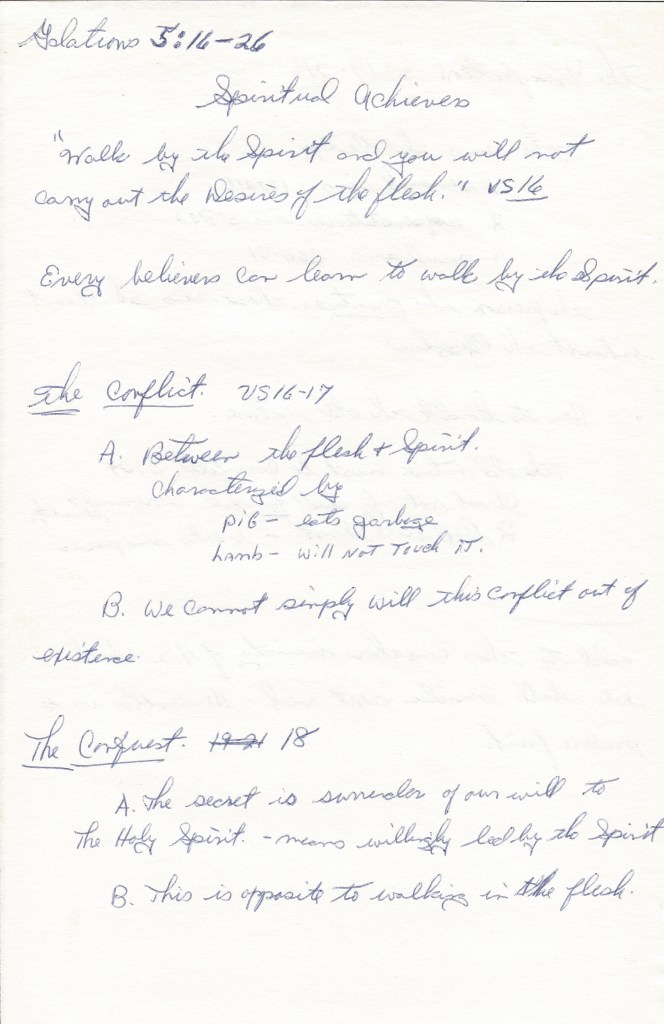 Galations 5:16-26
Spiritual Achievers
"Walk by the Spirit and you will not
carry out the Desires of the flesh." VS 16
Every believers can learn to walk by the Spirit.
The Conflict. VS 16-17
A. Between the flesh + Spirit.
Characterized by
PIG - eats garbage
Lamb - will NOT Touch IT.
B. We cannot simply will this conflict out of
existence.
The Conquest. 19-21 18
A. The secret is surrender of our will to
The Holy Spirit. - means willingly led by the Spirit
B. This is opposite to walking in the flesh.